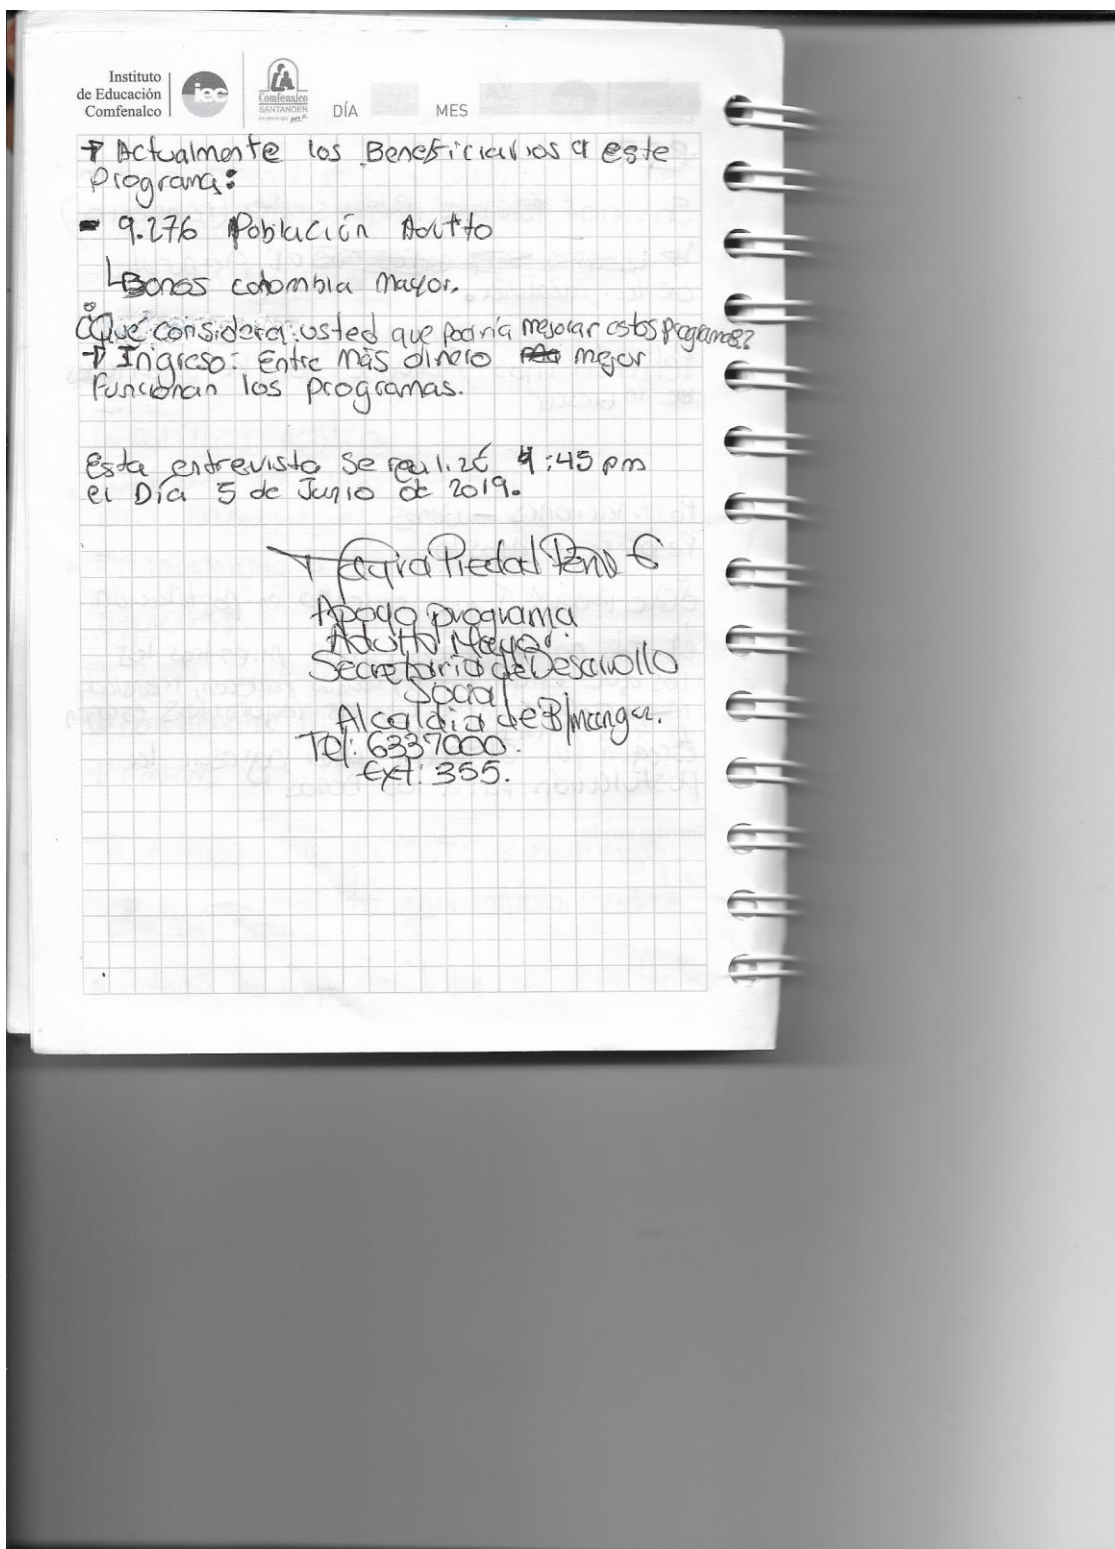 Instituto
de Educación
Comfenalco
iec
Comfenalco
SANTANDER
DÍA MES
→ Actualmente los Beneficiarios a este
Programa:
- 9.276 Población Adulto
↳ Bonos colombia mayor.
¿Qué considera usted que podría mejorar estos programas?
→ Ingreso: Entre más dinero mejor
Funcionan los programas.
Esta entrevista se realizó 4:45 pm
el Día 5 de Junio de 2019.
Piedad
Apoyo programa
Adulto Mayor.
Secretaria de Desarrollo
Social
Alcaldia de B/manga.
Tel: 6337000.
Ext: 355.